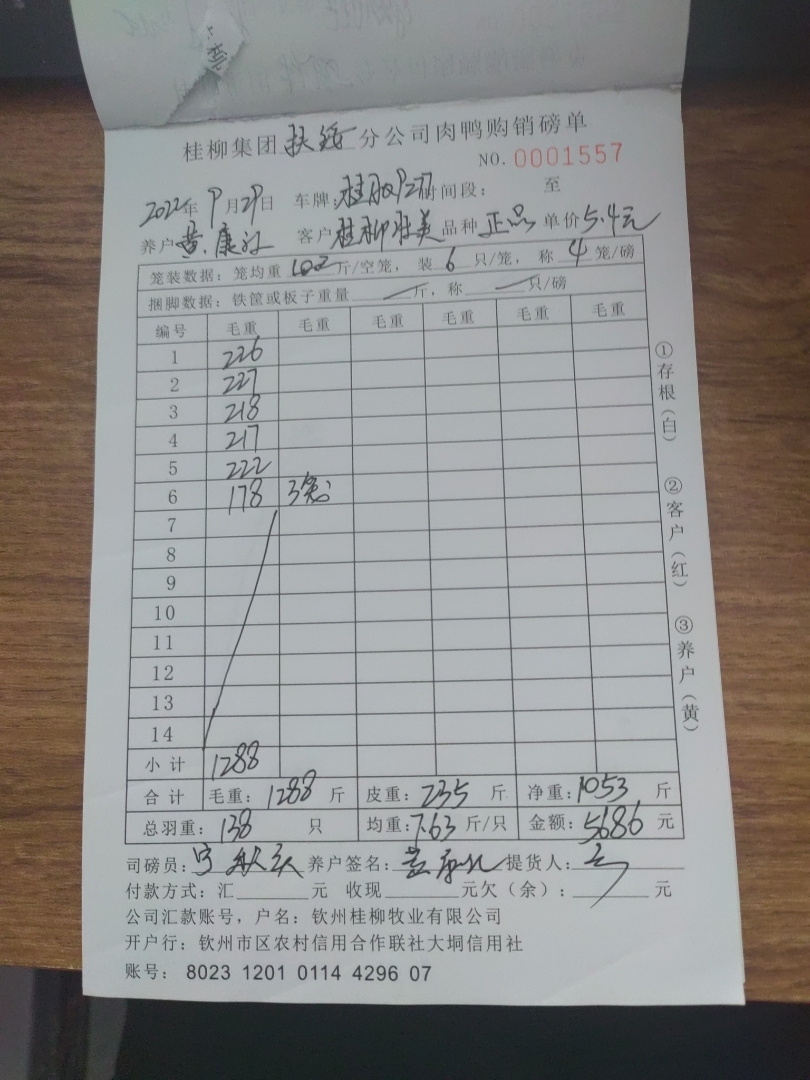 桂柳集团扶绥分公司肉鸭购销磅单
NO. 0001557
2022年9月29日 车牌: 时间段: 至
养户 黄康 客户桂柳壮美 品种 正品 单价5.4元
笼装数据: 笼均重 10.2 斤/空笼, 装 6 只/笼, 称 4 笼/磅
捆脚数据: 铁筐或板子重量 — 斤, 称 — 只/磅
编号 毛重 毛重 毛重 毛重 毛重 毛重
1 226
2 227
3 218
4 217
5 222
6 178 3笼
7
8
9
10
11
12
13
14
小计 1288
合计 毛重: 1288 斤 皮重: 235 斤 净重: 1053 斤
总羽重: 138 只 均重: 7.63 斤/只 金额: 5686 元
司磅员: 养户签名: 提货人:
付款方式: 汇 元 收现 元欠(余): 元
公司汇款账号, 户名: 钦州桂柳牧业有限公司
开户行: 钦州市区农村信用合作联社大垌信用社
账号: 8023 1201 0114 4296 07
①存根(白)
②客户(红)
③养户(黄)